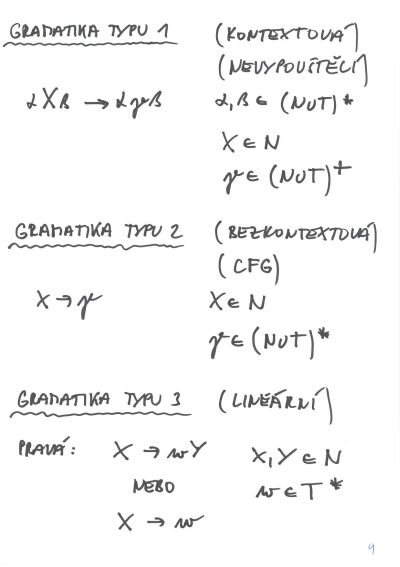 GRAMATIKA TYPU 1 (KONTEXTOVÁ)
(NEVYPOUŠTĚCÍ)
αXβ → αγβ α,β ∈ (N∪T)*
X ∈ N
γ ∈ (N∪T)+
GRAMATIKA TYPU 2 (BEZKONTEXTOVÁ)
(CFG)
X → γ X ∈ N
γ ∈ (N∪T)*
GRAMATIKA TYPU 3 (LINEÁRNÍ)
PRAVÁ: X → wY X,Y ∈ N
NEBO w ∈ T*
X → w
9